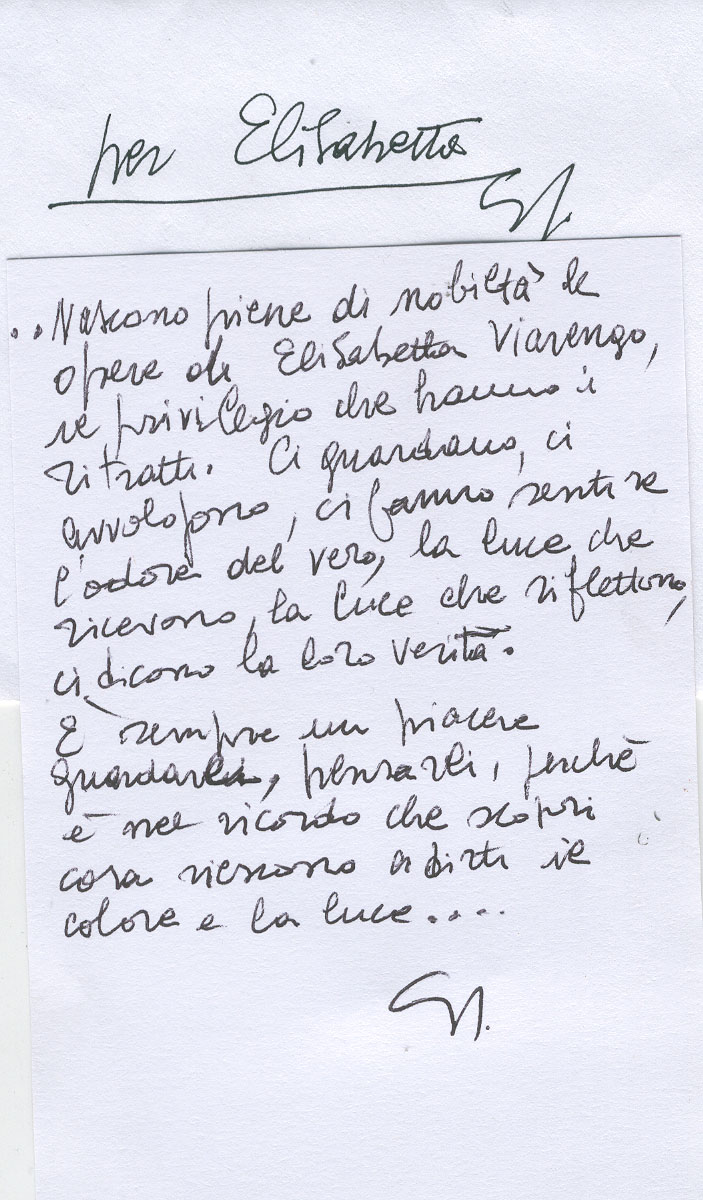 per Elisabetta
..Nascono piene di nobiltà le
opere di Elisabetta Viarengo,
il privilegio che hanno i
ritratti. Ci guardano, ci
avvolgono, ci fanno sentire
l'odore del vero, la luce che
ricevono, la luce che riflettono,
ci dicono la loro verità.
È sempre un piacere
guardarli, pensarli, perchè
è nel ricordo che scopri
cosa riescono a dirti il
colore e la luce....